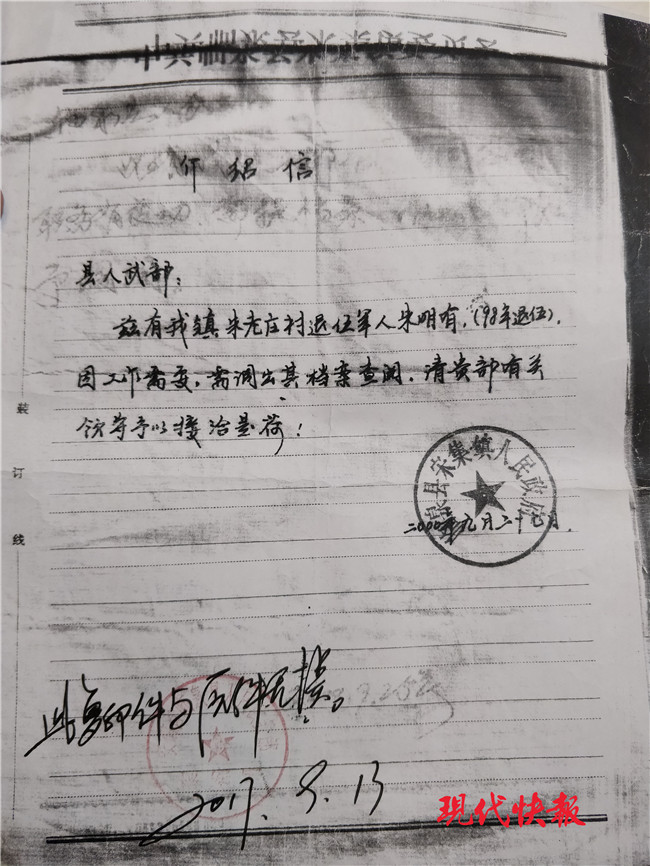 介绍信
县人武部:
兹有我镇朱老庄村退伍军人朱明有,(98年退伍),
因工作需要,需调出其档案查阅,请贵部有关
领导予以接洽是荷!
泉县宋集镇人民政府
二000年九月二十七日.
装
订
线
此复印件与原件无
2017.9.13
现代快報